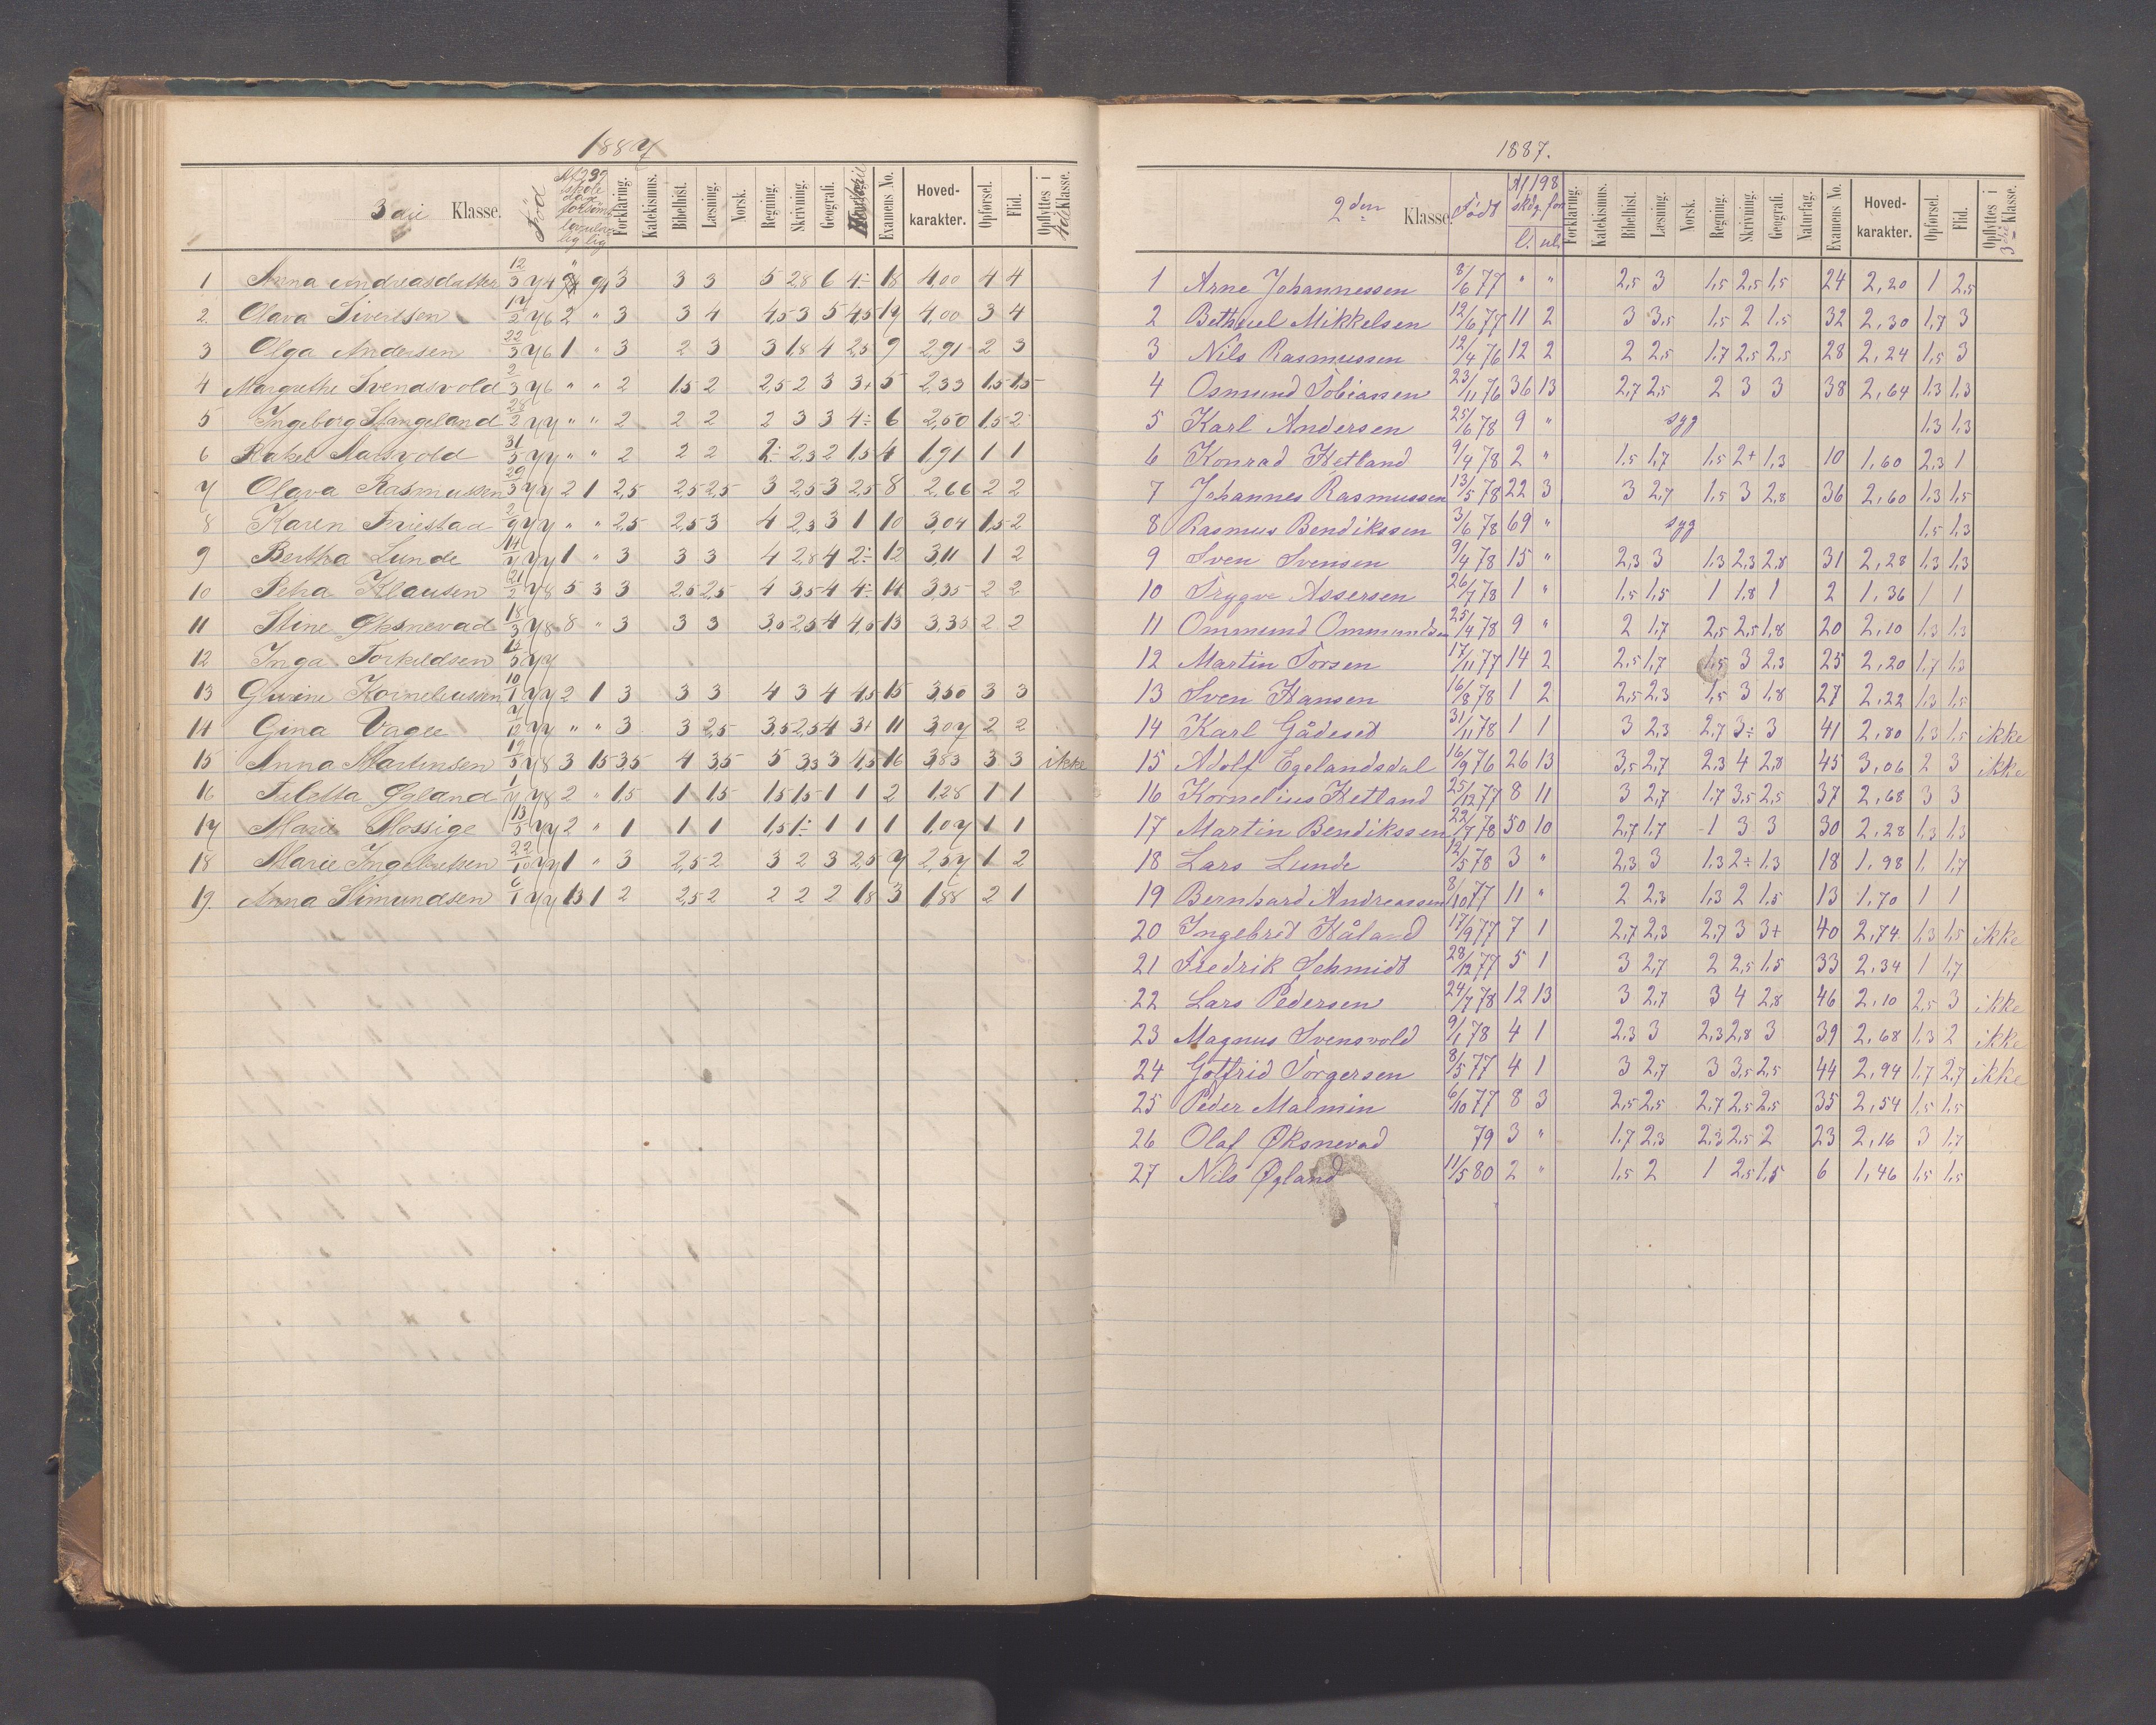 1887
3die Klasse. Född Af 232 skole dage forsömt lovlig ulovlig Forklaring. Katekismus. Bibelhist. Læsning. Norsk. Regning. Skrivning. Geografi. Examens No. Hoved-karakter. Opførsel. Flid. Opflyttes i 4de Klasse.
1 Anna Andreasdatter 12/3 74 94 3 3 3 5 2,8 6 4÷ 18 4,00 4 4
2 Olava Sivertsen 17/2 76 2 " 3 3 4 4,5 3 5 4,5 19 4,00 3 4
3 Olga Andersen 22/3 76 1 " 3 2 3 3 1,8 4 2,5 9 2,91 2 3
4 Margrethe Svendsvold 2/3 76 " " 2 1,5 2 2,5 2 3 3+ 5 2,33 1,5 1,5
5 Ingeborg Stangeland 28/2 77 " " 2 2 2 2 3 3 4÷ 6 2,50 1,5 2
6 Rakel Malsvold 31/5 77 " " 2 2 2 2÷ 2,3 2 1,5 4 1,91 1 1
7 Olava Rasmussen 29/3 77 2 1 2,5 2,5 2,5 3 2,5 3 2,5 8 2,66 2 2
8 Karen Friestad 2/9 77 " " 2,5 2,5 3 4 2,3 3 1 10 3,04 1,5 2
9 Bertha Lunde 14/7 77 1 " 3 3 3 4 2,8 4 2÷ 12 3,11 1 2
10 Petra Klausen 21/2 78 5 3 3 2,5 2,5 4 3,5 4 4÷ 14 3,35 2 2
11 Stine Øksnevad 18/3 78 8 " 3 3 3 3,5 2,5 4 4,5 13 3,35 2 2
12 Inga Torkeldsen 12/5 77
13 Gurine Korneliussen 10/1 77 2 1 3 3 3 4 3 4 4,5 15 3,50 3 3
14 Gina Vagle 7/12 77 " " 3 3 2,5 3,5 2,5 4 3+ 11 3,07 2 2
15 Anna Martinsen 19/5 78 3 15 3,5 4 3,5 5 3,3 3 4,5 16 3,83 3 3 ikke
16 Tuletta Øgland 1/7 78 2 " 1,5 1 1,5 1,5 1,5 1 1 2 1,28 1 1
17 Marie Mossige 13/5 77 2 " 1 1 1 1,5 1÷ 1 1 1 1,07 1 1
18 Marie Ingebretsen 22/10 77 1 " 3 2,5 2 3 2 3 2,5 7 2,57 1 2
19. Anna Simundsen 6/1 77 13 1 2 2,5 2 2 2 2 1,8 3 1,88 2 1
1887.
2den Klasse Født Af 198 skdg. for l. ul. Forklaring. Katekismus. Bibelhist. Læsning. Norsk. Regning. Skrivning. Geografi. Naturfag. Examens No. Hoved-karakter. Opførsel. Flid. Opflyttes i 3die Klasse.
1 Arne Johannessen 8/6 77 " " 2,5 3 1,5 2,5 1,5 24 2,20 1 2,5
2 Bethuel Mikkelsen 12/6 77 11 2 3 3,5 1,5 2 1,5 32 2,30 1,7 3
3 Nils Rasmussen 12/4 76 12 2 2 2,5 1,7 2,5 2,5 28 2,24 1,5 3
4 Osmund Tobiassen 23/11 76 36 13 2,7 2,5 2 3 3 38 2,64 1,3 1,3
5 Karl Andersen 25/6 78 9 " syg 1,3 1,3
6 Konrad Hetland 9/4 78 2 " 1,5 1,7 1,5 2+ 1,3 10 1,60 2,3 1
7 Johannes Rasmussen 13/5 78 22 3 3 2,7 1,5 3 2,8 36 2,60 1,3 1,5
8 Rasmus Bendikssen 3/6 78 69 " syg 1,5 1,3
9 Sven Svensen 9/4 78 15 " 2,3 3 1,3 2,3 2,8 31 2,28 1,3 1,3
10 Trygve Assersen 26/7 78 1 " 1,5 1,5 1 1,8 1 2 1,36 1 1
11 Ommund Ommundsen 25/4 78 9 " 2 1,7 2,5 2,5 1,8 20 2,10 1,3 1,3
12 Martin Torsen 17/11 77 14 2 2,5 1,7 1,5 3 2,3 25 2,20 1,7 1,3
13 Sven Hansen 16/8 78 1 2 2,5 2,3 1,5 3 1,8 27 2,22 1,3 1,5
14 Karl Gådeset 31/11 78 1 1 3 2,3 2,7 3÷ 3 41 2,80 1,3 1,5 ikke
15 Adolf Egelandsdal 16/9 76 26 13 3,5 2,7 2,3 4 2,8 45 3,06 2 3 ikke
16 Kornelius Hetland 25/12 77 8 11 3 2,7 1,7 3,5 2,5 37 2,68 3 3
17 Martin Bendikssen 22/7 78 50 10 2,7 1,7 1 3 3 30 2,28 1,3 1,3
18 Lars Lunde 12/5 78 3 " 2,3 3 1,3 2÷ 1,3 18 1,98 1, 1,7
19 Bernhard Andreassen 8/10 77 11 " 2 2,3 1,3 2 1,5 13 1,70 1 1
20 Ingebret Håland 17/9 77 7 1 2,7 2,3 2,7 3 3+ 40 2,74 1,3 1,5 ikke
21 Fredrik Schmidt 28/12 77 5 1 3 2,7 2 2,5 1,5 33 2,34 1 1,7
22 Lars Pedersen 24/7 78 12 13 3 2,7 3 4 2,8 46 2,10 2,5 3 ikke
23 Magnus Svensvold 9/1 78 4 1 2,3 3 2,3 2,8 3 39 2,68 1,3 2 ikke
24 Gotfrid Torgersen 8/5 77 4 1 3 2,7 3 3,5 2,5 44 2,94 1,7 2,7 ikke
25 Peder Malmin 6/10 77 8 3 2,5 2,5 2,7 2,5 2,5 35 2,54 1,5 1,5
26 Olaf Øksnevad 79 3 " 1,7 2,3 2,3 2,5 2 23 2,16 3 1,7
27 Nils Øgland 11/5 80 2 " 1,5 2 1 2,5 1,5 6 1,46 1,5 1,5